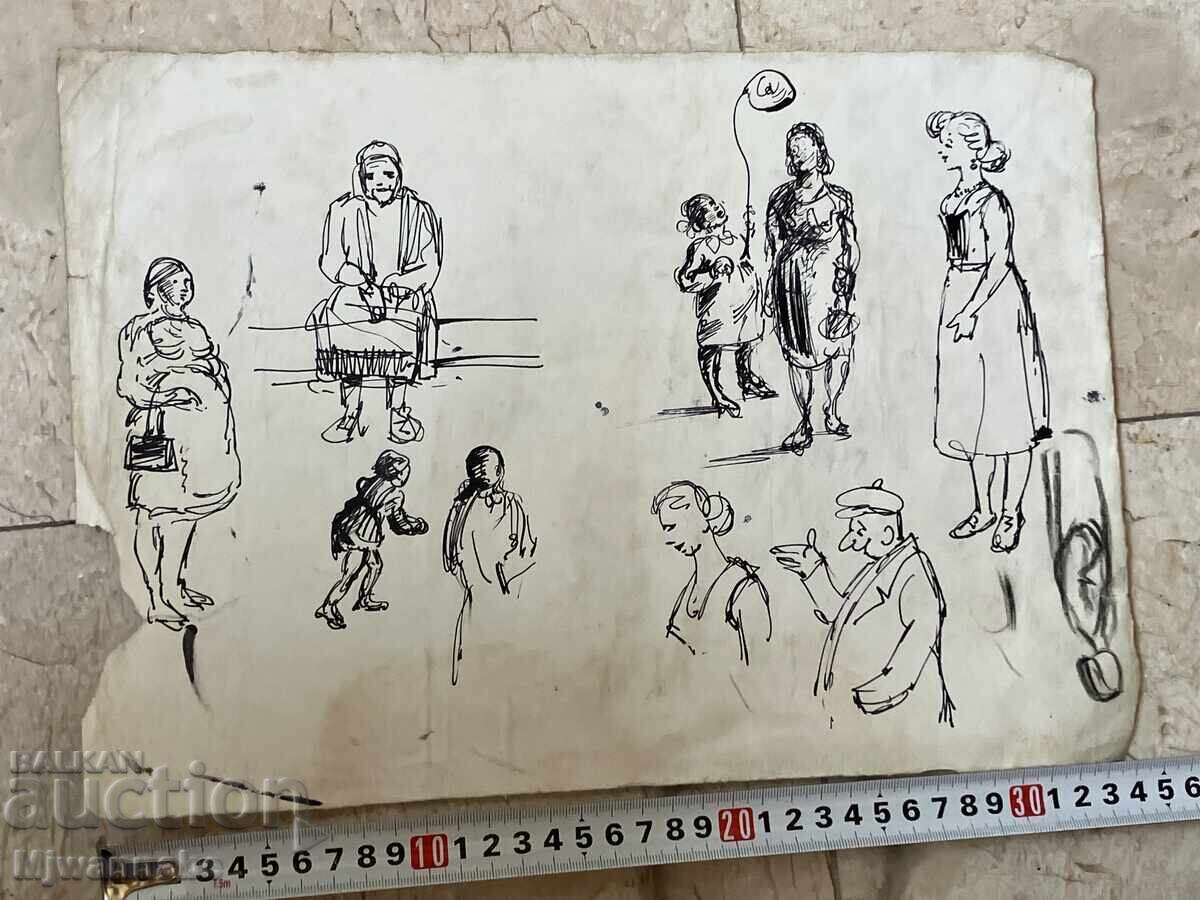 BALKAN
auction
3 4 5 6 7 8 9 10 1 2 3 4 5 6 7 8 9 20 1 2 3 4 5 6 7 8 9 30 1 2 3 4 5 6
7.5m